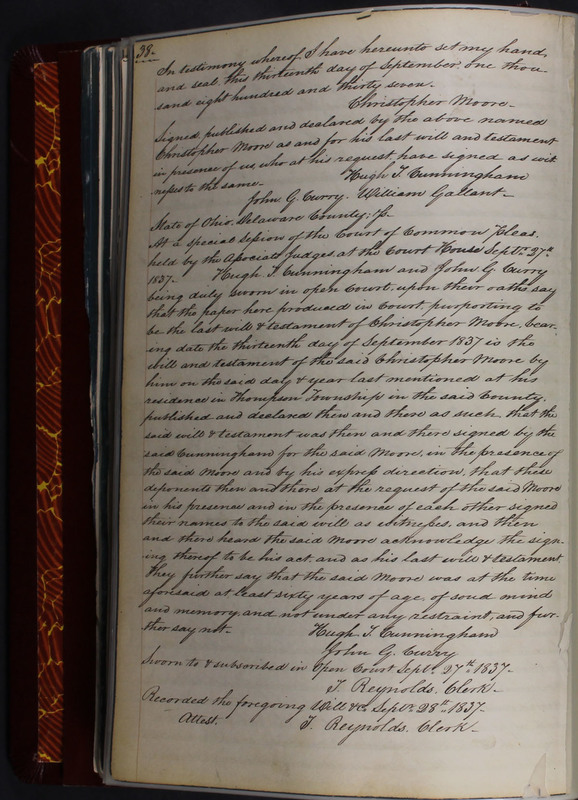 38.
In testimony whereof I have hereunto set my hand,
and seal, this thirteenth day of September, one thou-
sand eight hundred and thirty seven.
Christopher Moore-
Signed, published and declared by the above named
Christopher Moore as and for his last will and testament
in presence of us, who at his request, have signed as wit
nesses to the same- Hugh T. Cunningham
John G. Curry. William Gallant-
State of Ohio, Delaware County; Sc-
At a special Session of the Court of Common Pleas.
held by the Associate Judges, at the Court House Septr. 27th
1837- Hugh T. Cunningham and John G. Curry
being duly sworn in open Court, upon their oaths, say
that the paper here produced in Court, purporting to
be the last will & testament of Christopher Moore, bear-
ing date the thirteenth day of September 1837 is the
will and testament of the said Christopher Moore by
him on the said day & year last mentioned at his
residence in Thompson Township in the said County.
published and declared then and there as such, that the
said will & testament was then and there signed by the
said Cunningham for the said Moore, in the presence of
the said Moore and by his express direction, that these
deponents then and there at the request of the said Moore
in his presence and in the presence of each other signed
their names to the said will as witnesses, and then
and there heard the said Moore acknowledge the sign-
ing thereof to be his act, and as his last will & testament,
They further say that the said Moore was at the time
aforesaid at least sixty years of age, of soud mind
and memory, and not under any restraint, and fur-
ther say not- Hugh T. Cunningham
John G. Curry
Sworn to & subscribed in Open Court Septr. 27th 1837-
T. Reynolds, Clerk-
Recorded the foregoing Will &c, Septr. 28th 1837.
Attest. T. Reynolds, Clerk-